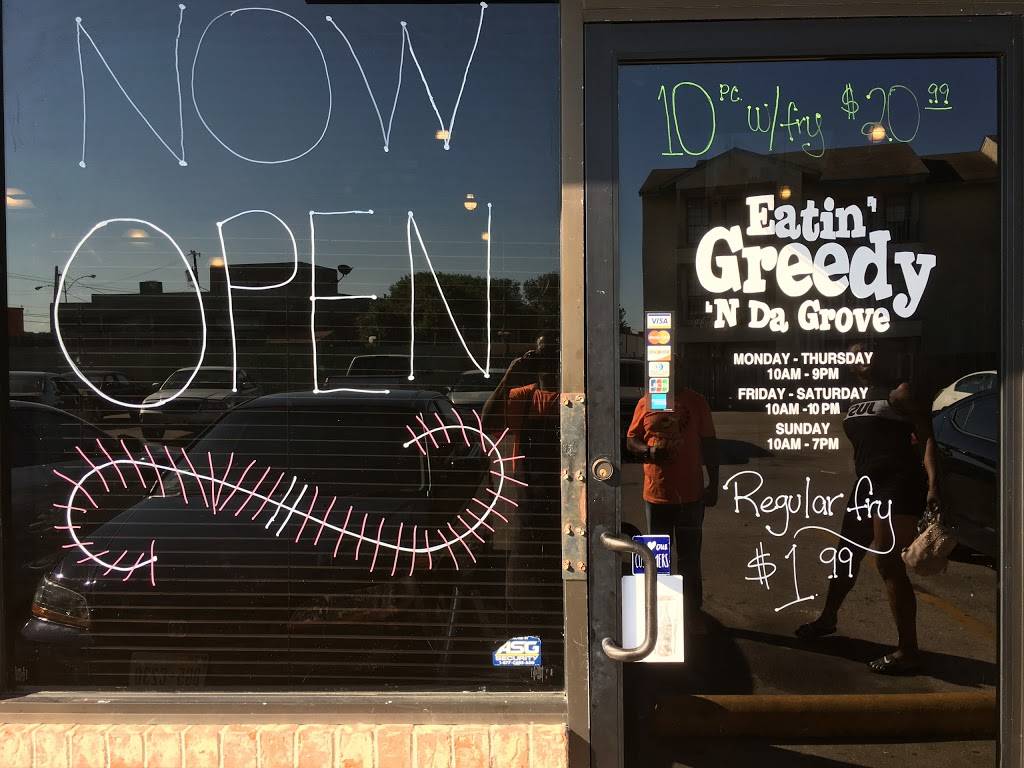 NOW
OPEN
ASG
SECURITY
10 PC. w/fry $20.99
Eatin'
Greedy
'N Da Grove
VISA
MONDAY - THURSDAY
10AM - 9PM
FRIDAY - SATURDAY
10AM - 10 PM
SUNDAY
10AM - 7PM
Regular fry
$1.99
OUR